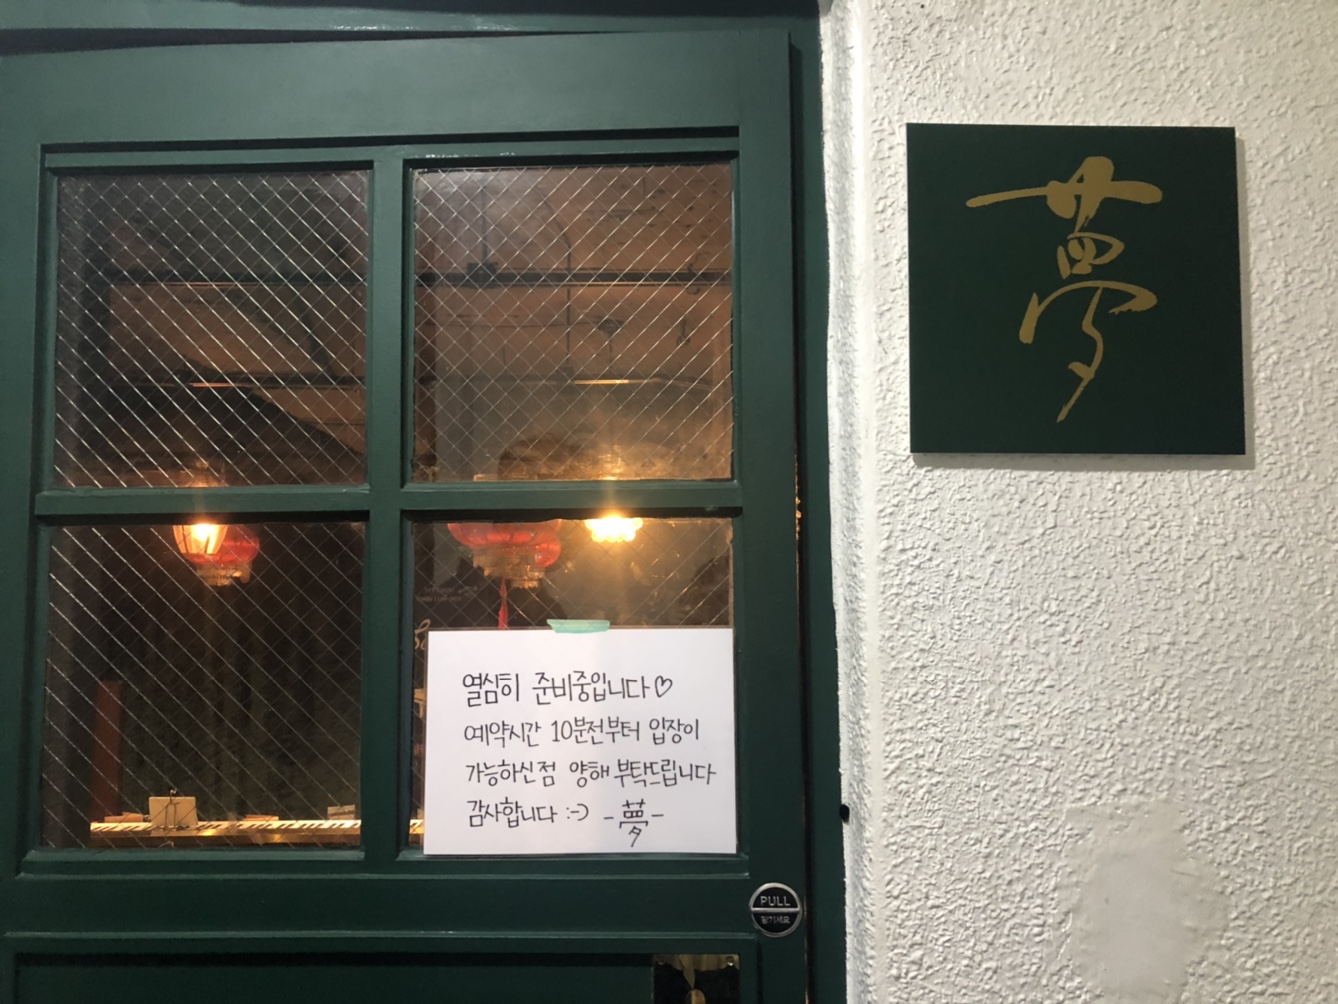 夢
열심히 준비중입니다♡
예약시간 10분전부터 입장이
가능하신점 양해 부탁드립니다
감사합니다 :-) -夢-
PULL
당기세요